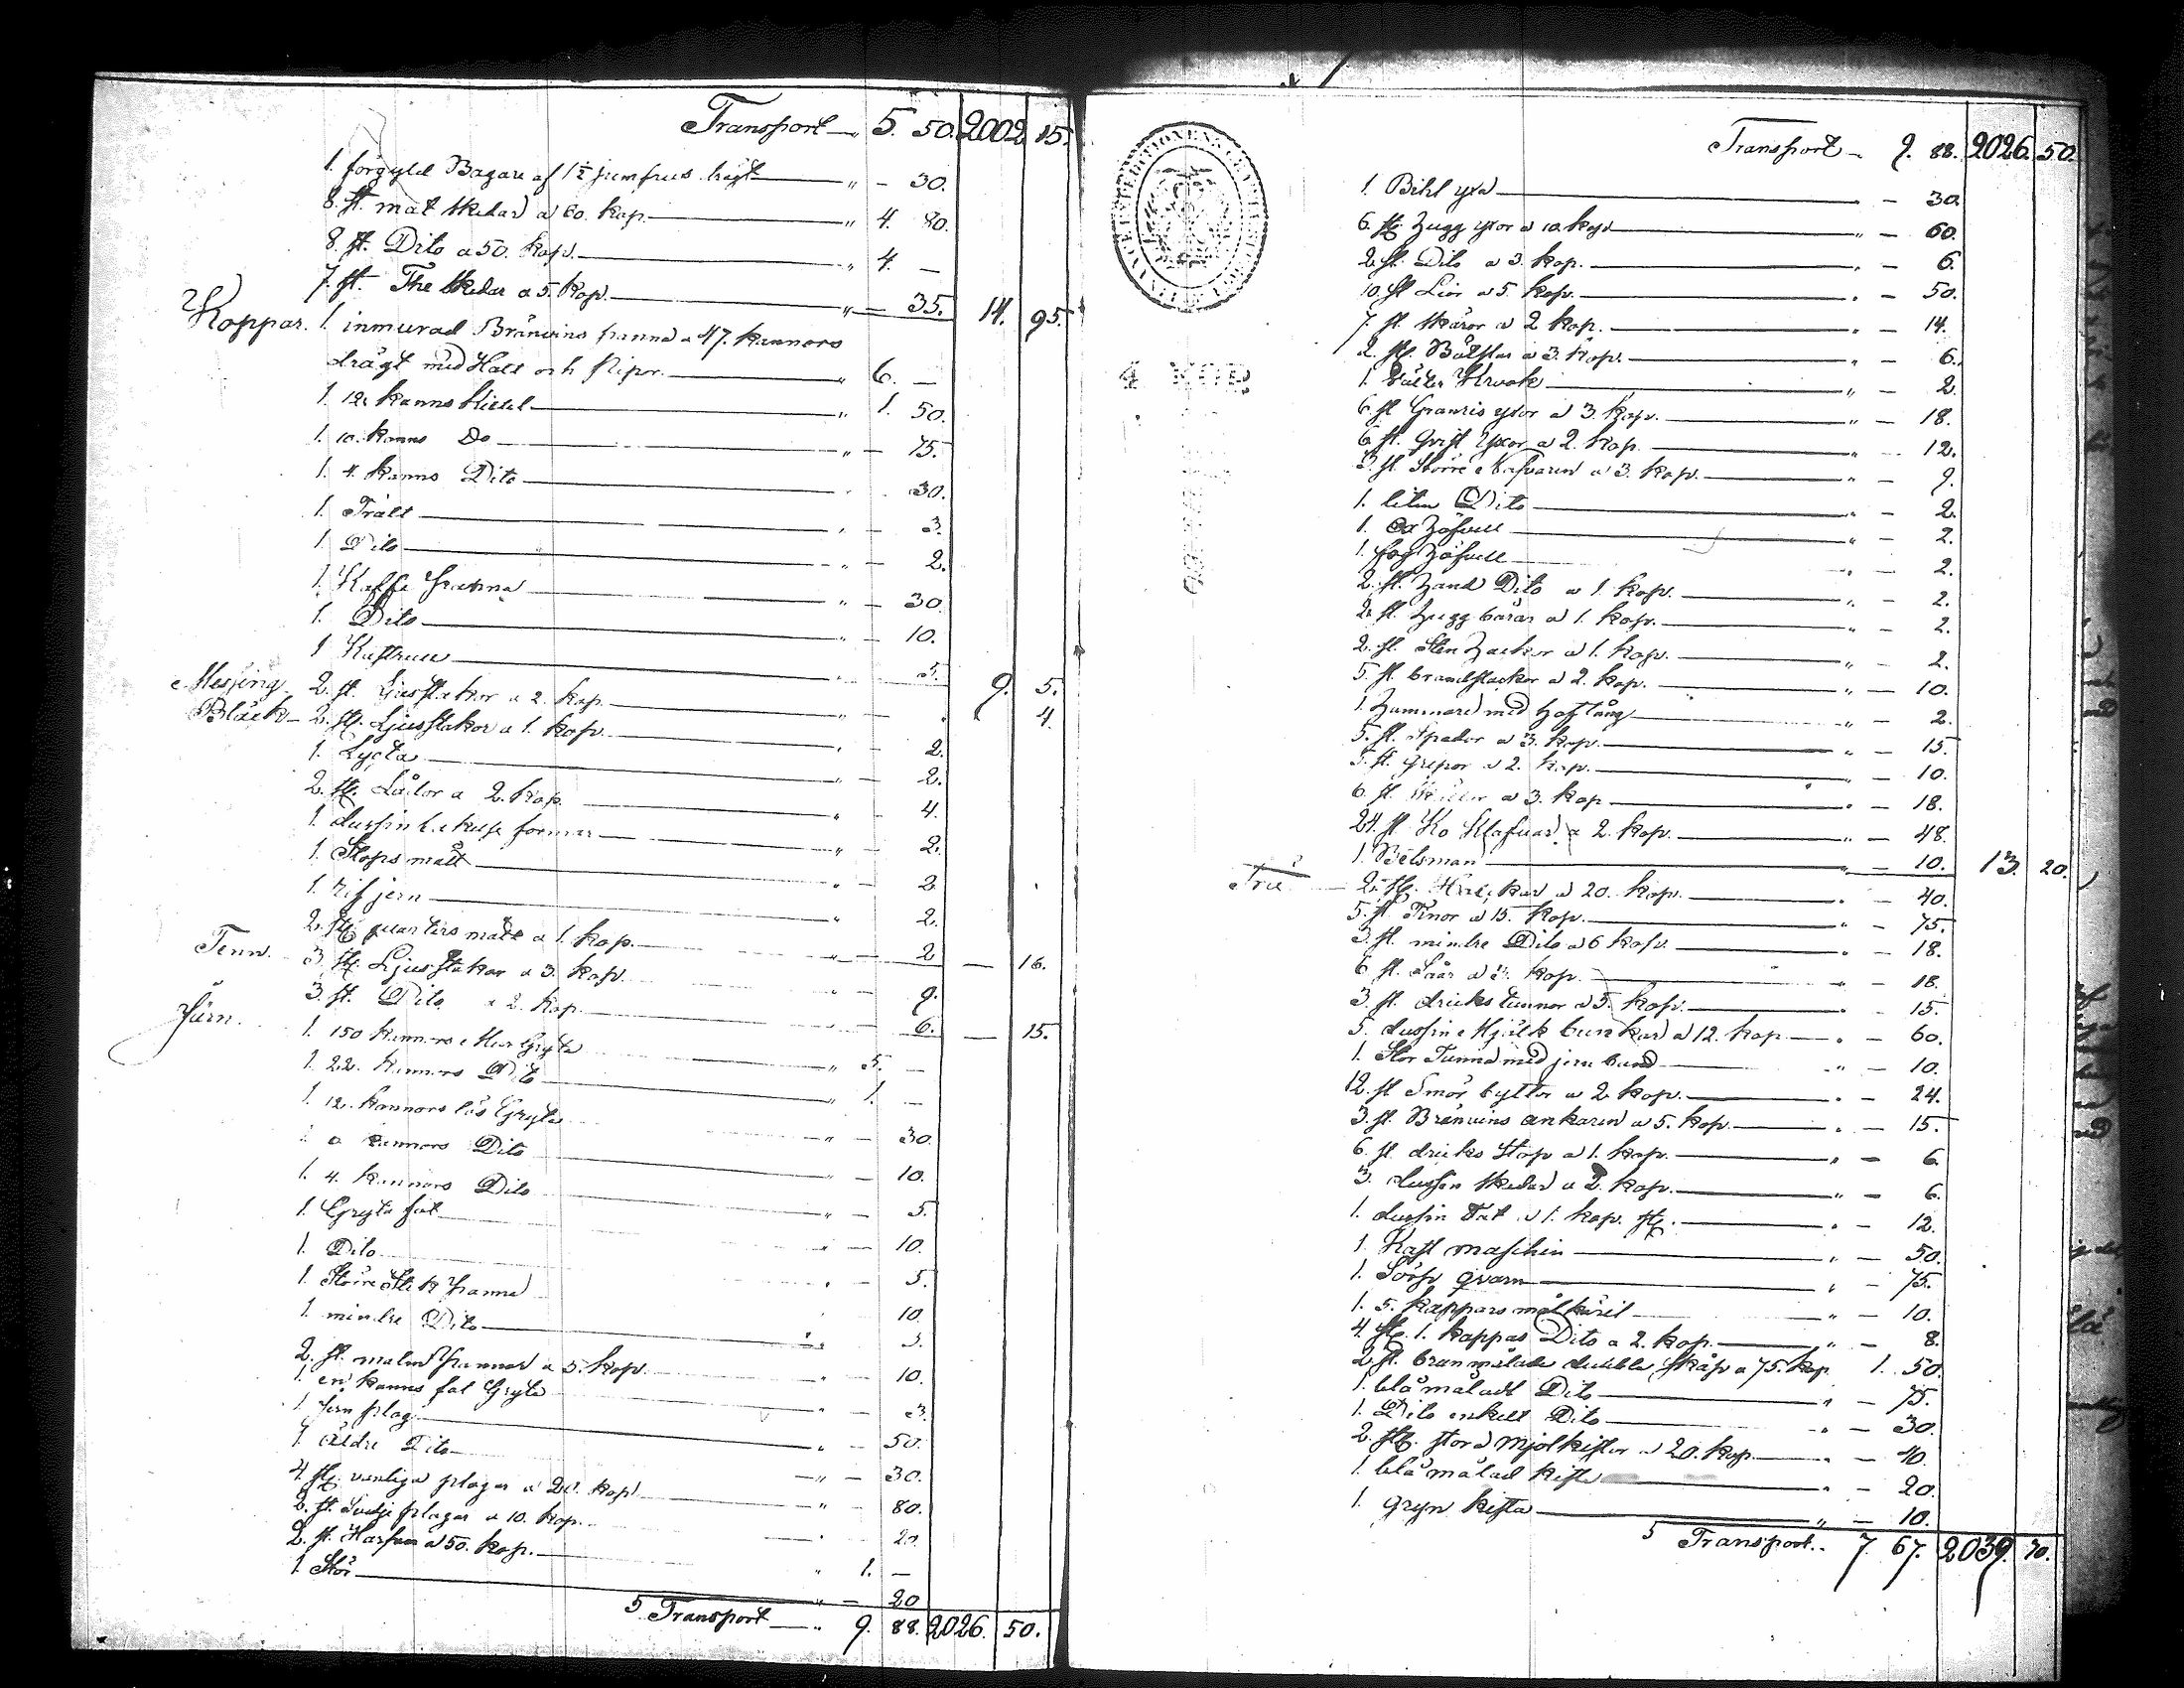 Transport — 5. 50. 2002. 15.
1. förgyld Bägare af 1½ jumfrus drägt — " — 30.
8. st. mat skedar a 60. kop. — " 4. 80.
8. st. Dito a 50. kop. — " 4. —
7. st. The skedar a 5. kop. — " — 35. 14. 95.
Koppar. 1. inmurad Bränvins panna a 47. kannors
drägt med Hatt och Pipor. — " 6. —
1. 12. kanns kittel — " 1. 50.
1. 10. kanns Do — " — 75.
1. 4. kanns Dito — 30.
1. Tratt — " — 3.
1. Dito — " — 2.
1. Kaffe panna — " — 30.
1. Dito — " — 10.
1 Kastrull — " — 5. 9. 5.
Messing. 2. st. Ljusstakor a 2. kop. — " — 4.
Bläck — 2. st. Ljusstakor a 1. kop. — " — 2.
1. Lycta — " — 2.
2. st. Låtor a 2. kop. — " — 4.
1. dussin formar — " — 2.
1. Stops mått — " — 2.
1. rifjern — " 2.
2. st. quarters mått a 1. kop. — " — 2. — 16.
Tenn. 3. st. Ljusstakar a 3. kop. — " — 9.
3. st. Dito a 2. kop. — " — 6. — 15.
Järn. 1. 150 kannors Mur Gryta — " 5. —
1. 22. kannors Dito — " 1. —
1. 12. kannors lös Gryta — " — 30.
kannors Dito — " — 10.
1. 4. kannors Dito — " — 5.
1. Gryta fot — " — 10.
1. Dito — " — 5.
1. Större Stek panna — 10.
1. mindre Dito — " 5.
2. st. malm pannor a 5. kop. — " — 10.
1. en kanns fot Gryta — " — 3.
1. Jern plog — " — 50.
1. Äldre Dito — " — 30.
4. st. vanliga plogar a 20. kop. — " — 80.
2. st. plogar a 10. kop. — 20.
2. st. Harfvar a 50. kop. — " 1. —
1. Stör — " — 20
5 Transport — " 9. 88. 2026. 50.
Transport — 9. 88. 2026. 50.
4 KOP.
1. Bihl yxa — " — 30.
6. st. Hugg yxor a 10. kop. — " — 60.
2. st. Dito a 3. kop. — " — 6.
10. st. Liar a 5. kop. — " — 50.
7. st. skäror a 2 kop. — " — 14.
2. st. a 3. kop. — " — 6.
1. Krook — " — 2.
6. st. Granris yxor a 3. kop. — " — 18.
6. st. Qvist Yxor a 2. kop. — " — 12.
3. st. Större Nafvaren a 3. kop. — " — 9.
1. liten Dito — " — 2.
1. Ox Höfvell — " — 2.
1. fog Höfvell — " — 2.
2. st. Hand Dito a 1. kop. — " — 2.
2. st. Hugg bårar a 1. kop. — " — 2.
2. st. Sten Hackor a 1. kop. — " — 2.
5. st. brandstackor a 2. kop. — " — 10.
1. Hammare med Hoftång — " — 2.
5. st. Spador a 3. kop. — " — 15.
5. st. grepor a 2. kop. — " — 10.
6. st. a 3. kop — " — 18.
24. st. Ko Klafvar a 2. kop. — " — 48.
1. Betsman — " — 10. 13. 20.
Trä 2. st. kar a 20. kop. — " — 40.
5. st. Tinor a 15. kop. — " — 75.
3. st. mindre Dito a 6 kop. — " — 18.
6 st. Såar a 3. kop. — " — 18.
3. st. dricks tunnor a 5. kop. — " 15.
5. dussin Mjölk bunkar a 12. kop. — " — 60.
1. Stor Tunna med jern band — " — 10.
12. st Smör byttor a 2. kop. — " — 24.
3. st. Bränvins ankaren a 5. kop. — " — 15.
6. st. dricks Stop a 1. kop. — " — 6.
3. dussin skedar a 2. kop. — " — 6.
1. dussin Fat a 1. kop. st. — " — 12.
1 Kast maschin — " — 50.
1. qvarn — " — 75.
1. 5. kappars mål käril — " — 10.
4. st. 1. kappas Dito a 2. kop. — " — 8.
2. st. brun målade dubbla skåp a 75. kop 1. 50.
1. blå måladt Dito — " — 75.
1. Dito enkelt Dito — " — 30.
2. st. stora mjölkistor a 20. kop. — " — 40.
1. blå målad kista — " — 20.
1. gryn kista — " — 10.
5 Transport.. 7. 67. 2039. 70.